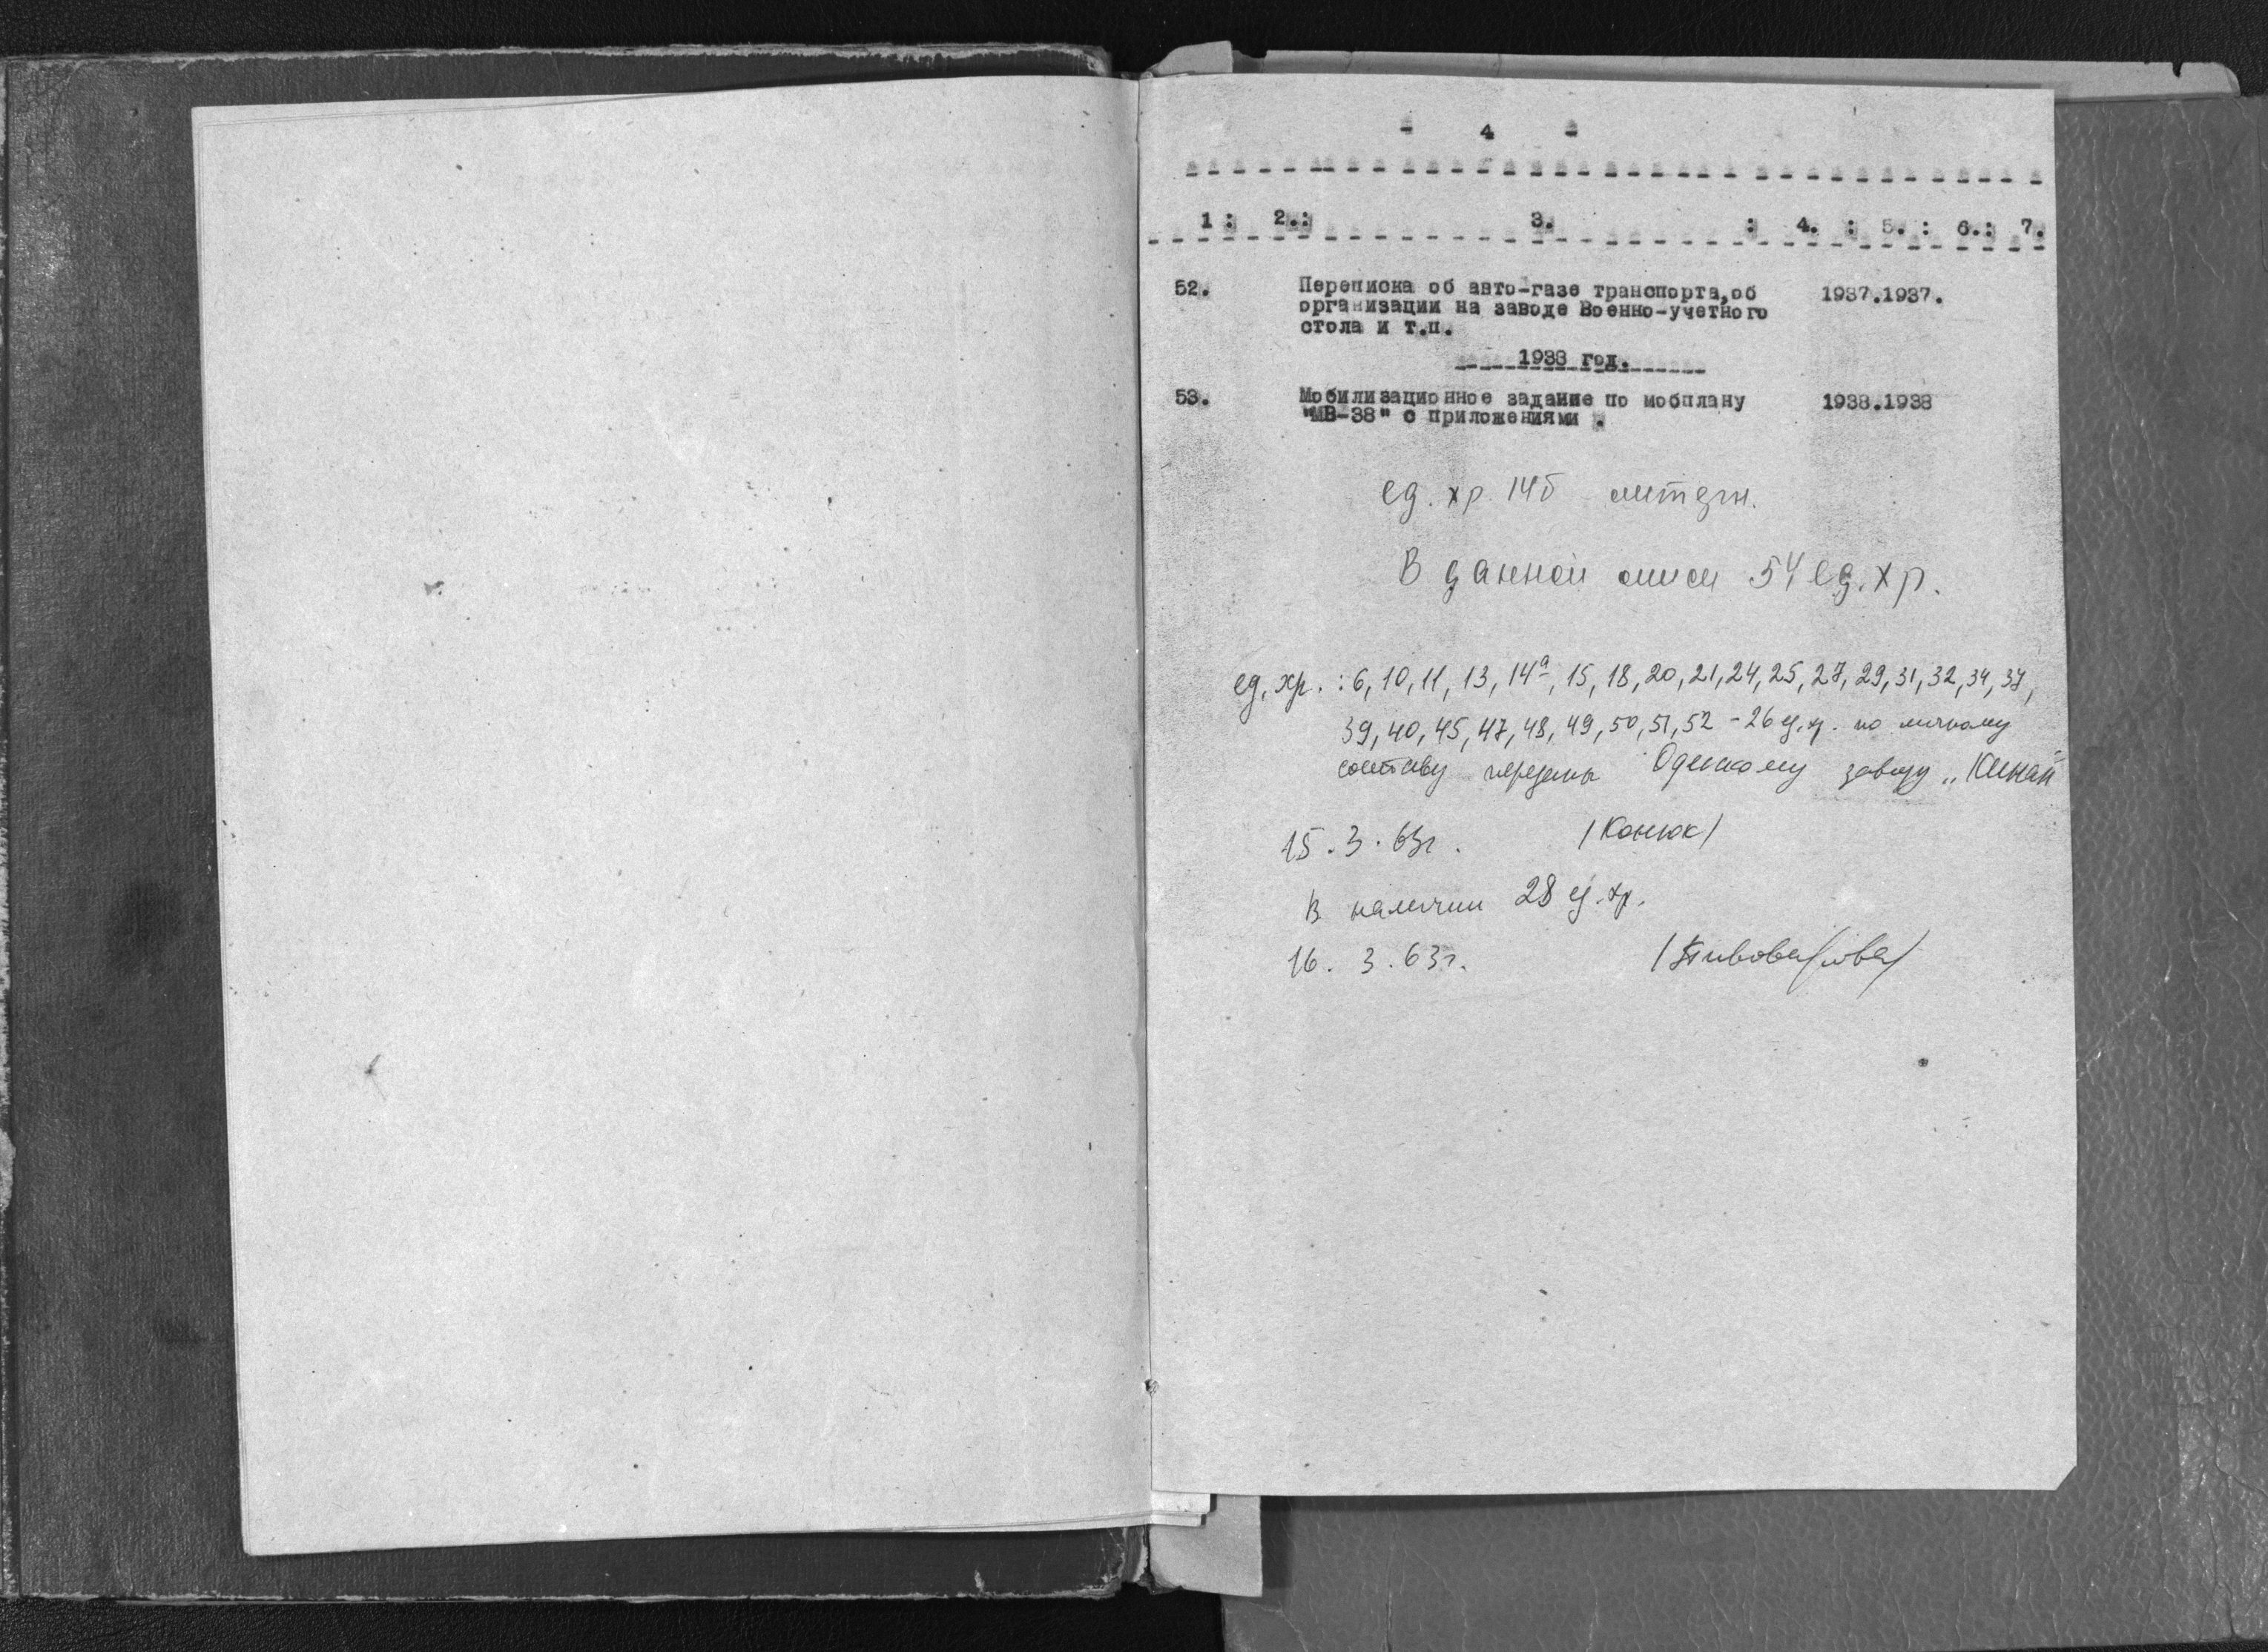 - 4 -
1 : 2.: 3. : 4. : 5. : 6.: 7.
52. Переписка об авто-газе транспорта,об 1937.1937.
организации на заводе Военно-учетного
стола и т.п.
1938 год.
53. Мобилизационное задание по мобплану 1938.1938
"МВ-38" с приложениями .
ед. хр. 14б
В данной описи 54 ед. хр.
ед. хр. : 6, 10, 11, 13, 14а, 15, 18, 20, 21, 24, 25, 27, 29, 31, 32, 34, 37,
39, 40, 45, 47, 48, 49, 50, 51, 52 - 26 ед. хр. по личному
составу переданы Одесскому заводу „Кинап"
15. 3. 63г. /Конюк/
В наличии 28 ед. хр.
16. 3. 63г. /Пивоварова/